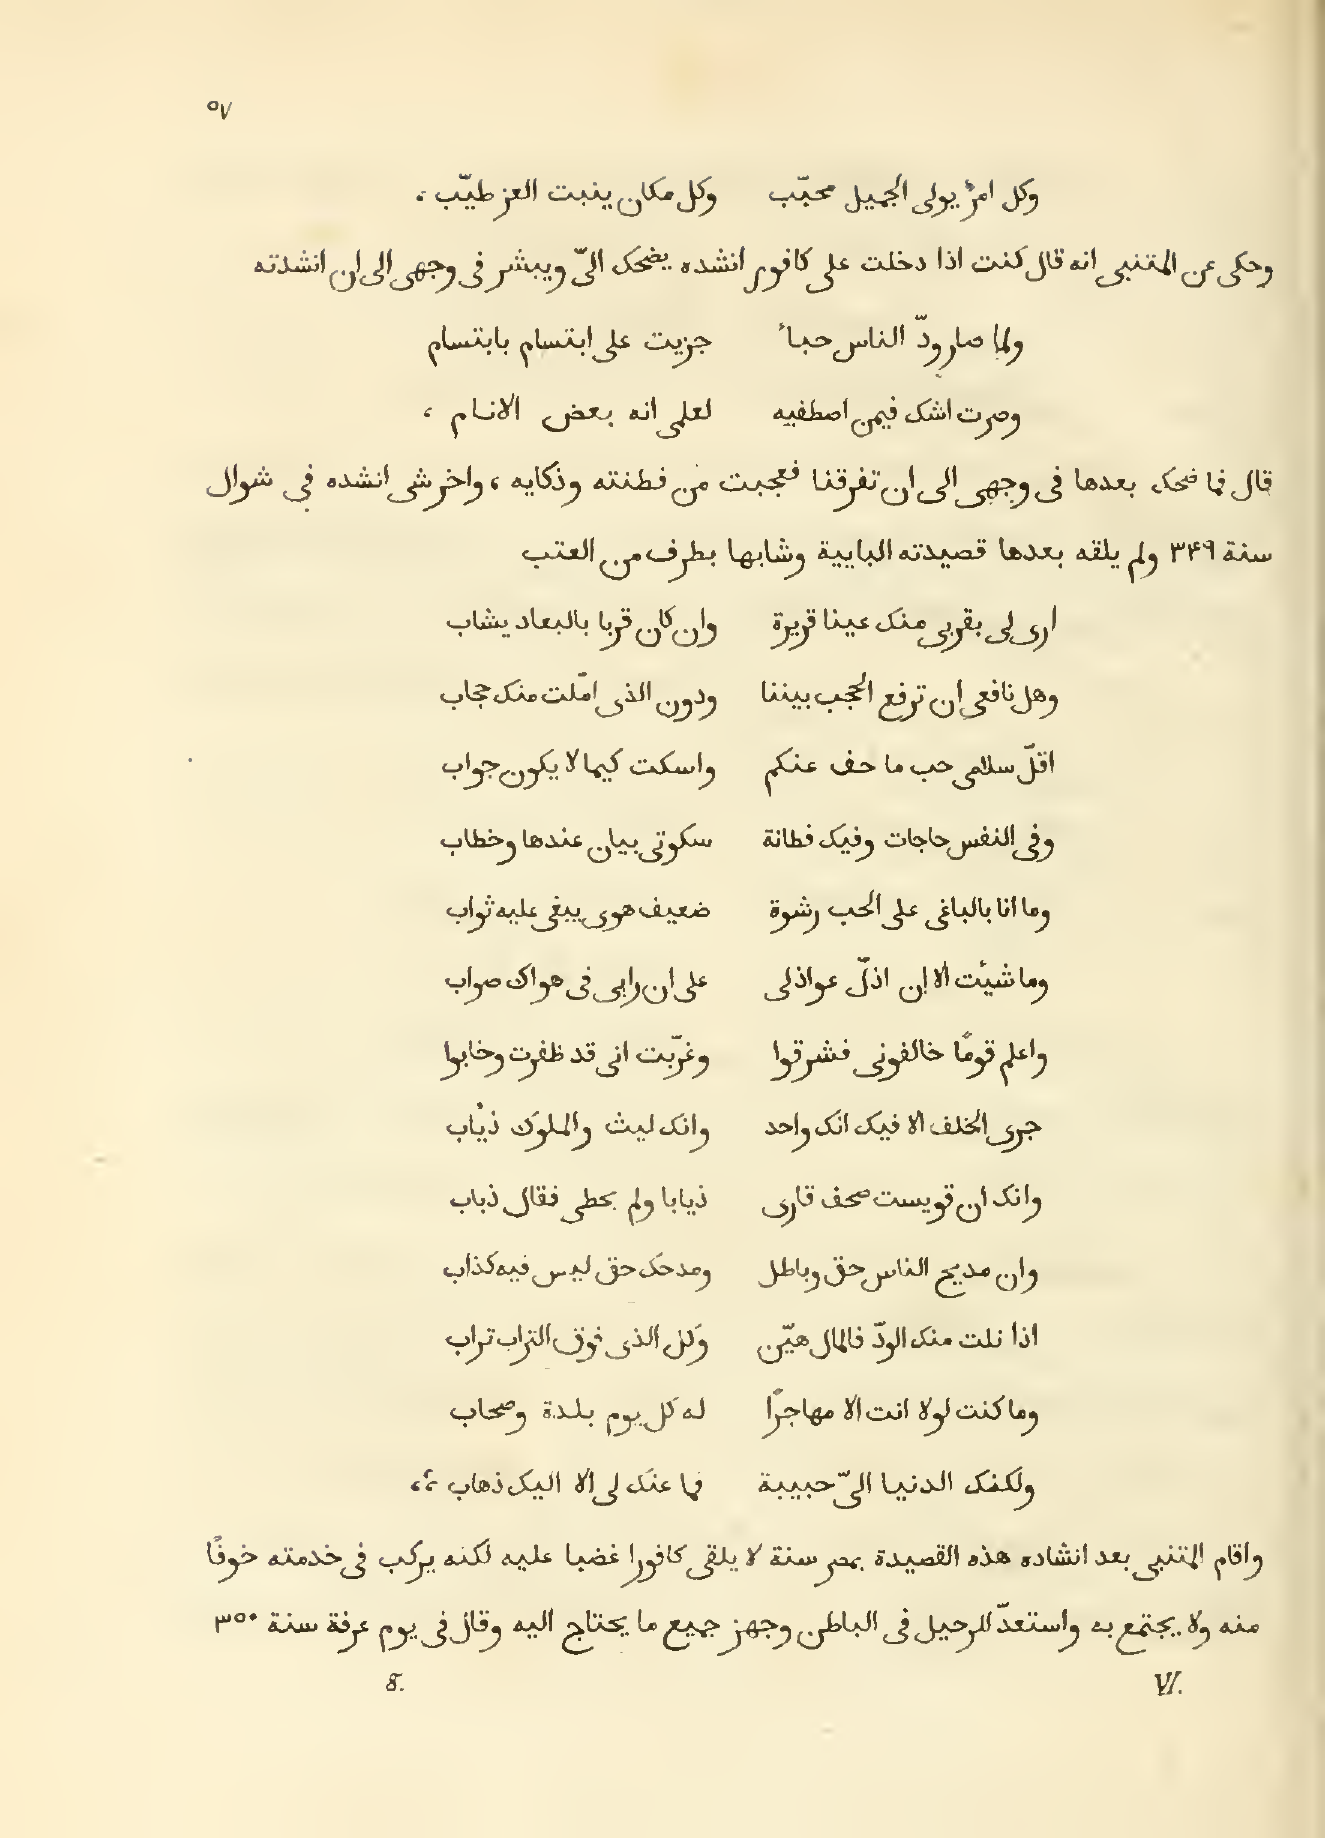 ٥٧
وكل امرُ يولى الجميل محبّب وكل مكان ينبت العز طيّب ،
وحكى عن المتنبى انه قال كنت اذا دخلت على كافور انشده يضحك الىّ ويبشر فى وجهى الى ان انشدته
ولما صار ودّ الناس حباً جزيت على ابتسام بابتسام
وصرت اشك فيمن اصطفيه لعلمى انه بعض الانام ،
قال فما ضحك بعدها فى وجهى الى ان تفرقنا فعجبت من فطنته وذكايه ، واخر شى انشده فى شوال
سنة ٣٤٩ ولم يلقه بعدها قصيدته البايية وشابها بطرف من العتب
ارى لى بقربى منك عينا قريرة وان كان قربا بالبعاد يشاب
وهل نافعى ان ترفع الحجب بيننا ودون الذى امّلت منك حجاب
اقلّ سلامى حب ما حف عنكم واسكت كيما لا يكون جواب
وفى النفس حاجات وفيك فطانة سكوتى بيان عندها وخطاب
وما انا بالباغى على الحب رشوة ضعيف هوى يبغى عليه ثواب
وما شئت الا ان اذلّ عواذلى على ان رايى فى هواك صواب
واعلم قومًا خالفونى فشرقوا وغرّبت انى قد ظفرت وخابوا
جرى الخلف الا فيك انك واحد وانك ليث والملوك ذئاب
وانك ان قويست صحف قارى ذيابا ولم يحطى فقال ذباب
وان مديح الناس حق وباطل ومدحك حق ليس فيه كذاب
اذا نلت منك الودّ فالمال هيّن وكل الذى فوق التراب تراب
وما كنت لولا انت الا مهاجرًا له كل يوم بلدة وصحاب
ولكنك الدنيا الىّ حبيبة فما عنك لى الا اليك ذهاب ،؛
واقام المتنبى بعد انشاده هذه القصيدة بمصر سنة لا يلقى كافورا غضبا عليه لكنه يركب فى خدمته خوفًا
منه ولا يجتمع به واستعدّ للرحيل فى الباطن وجهز جميع ما يحتاج اليه وقال فى يوم عرفة سنة ٣٥٠
VI. 8.